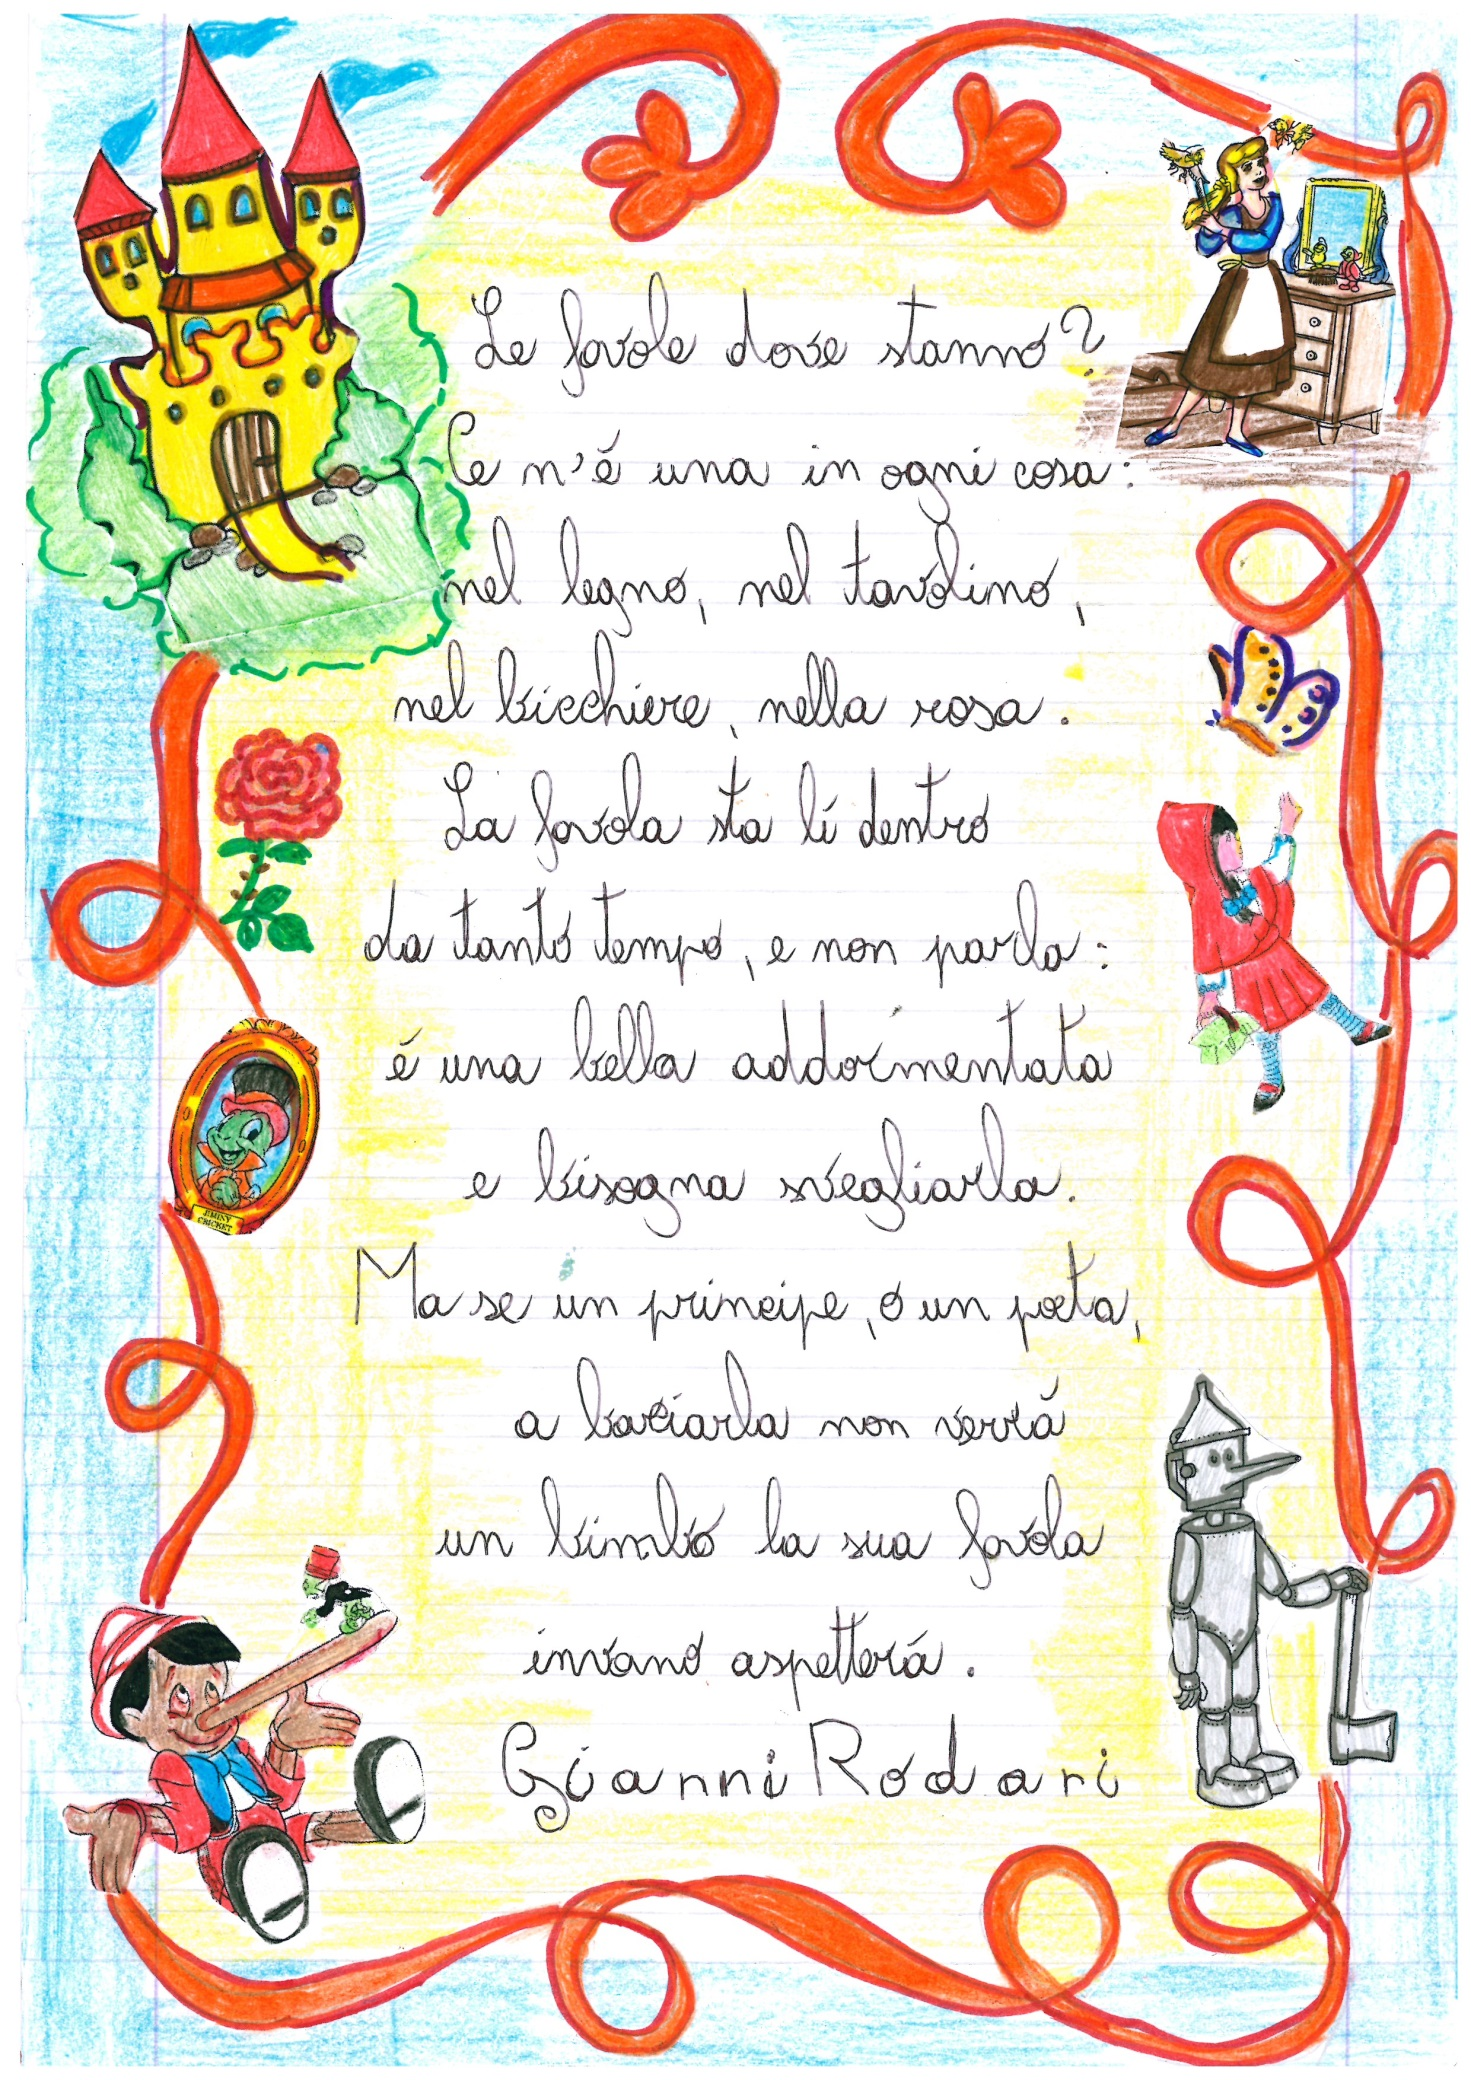 Le favole dove stanno?
Ce n'é una in ogni cosa:
nel legno, nel tavolino,
nel bicchiere, nella rosa.
La favola sta lí dentro
da tanto tempo, e non parla:
é una bella addormentata
e bisogna svegliarla.
Ma se un principe, o un poeta,
a baciarla non verrá
un bimbo la sua favola
invano aspetterá.
Gianni Rodari
JIMINY
CRICKET